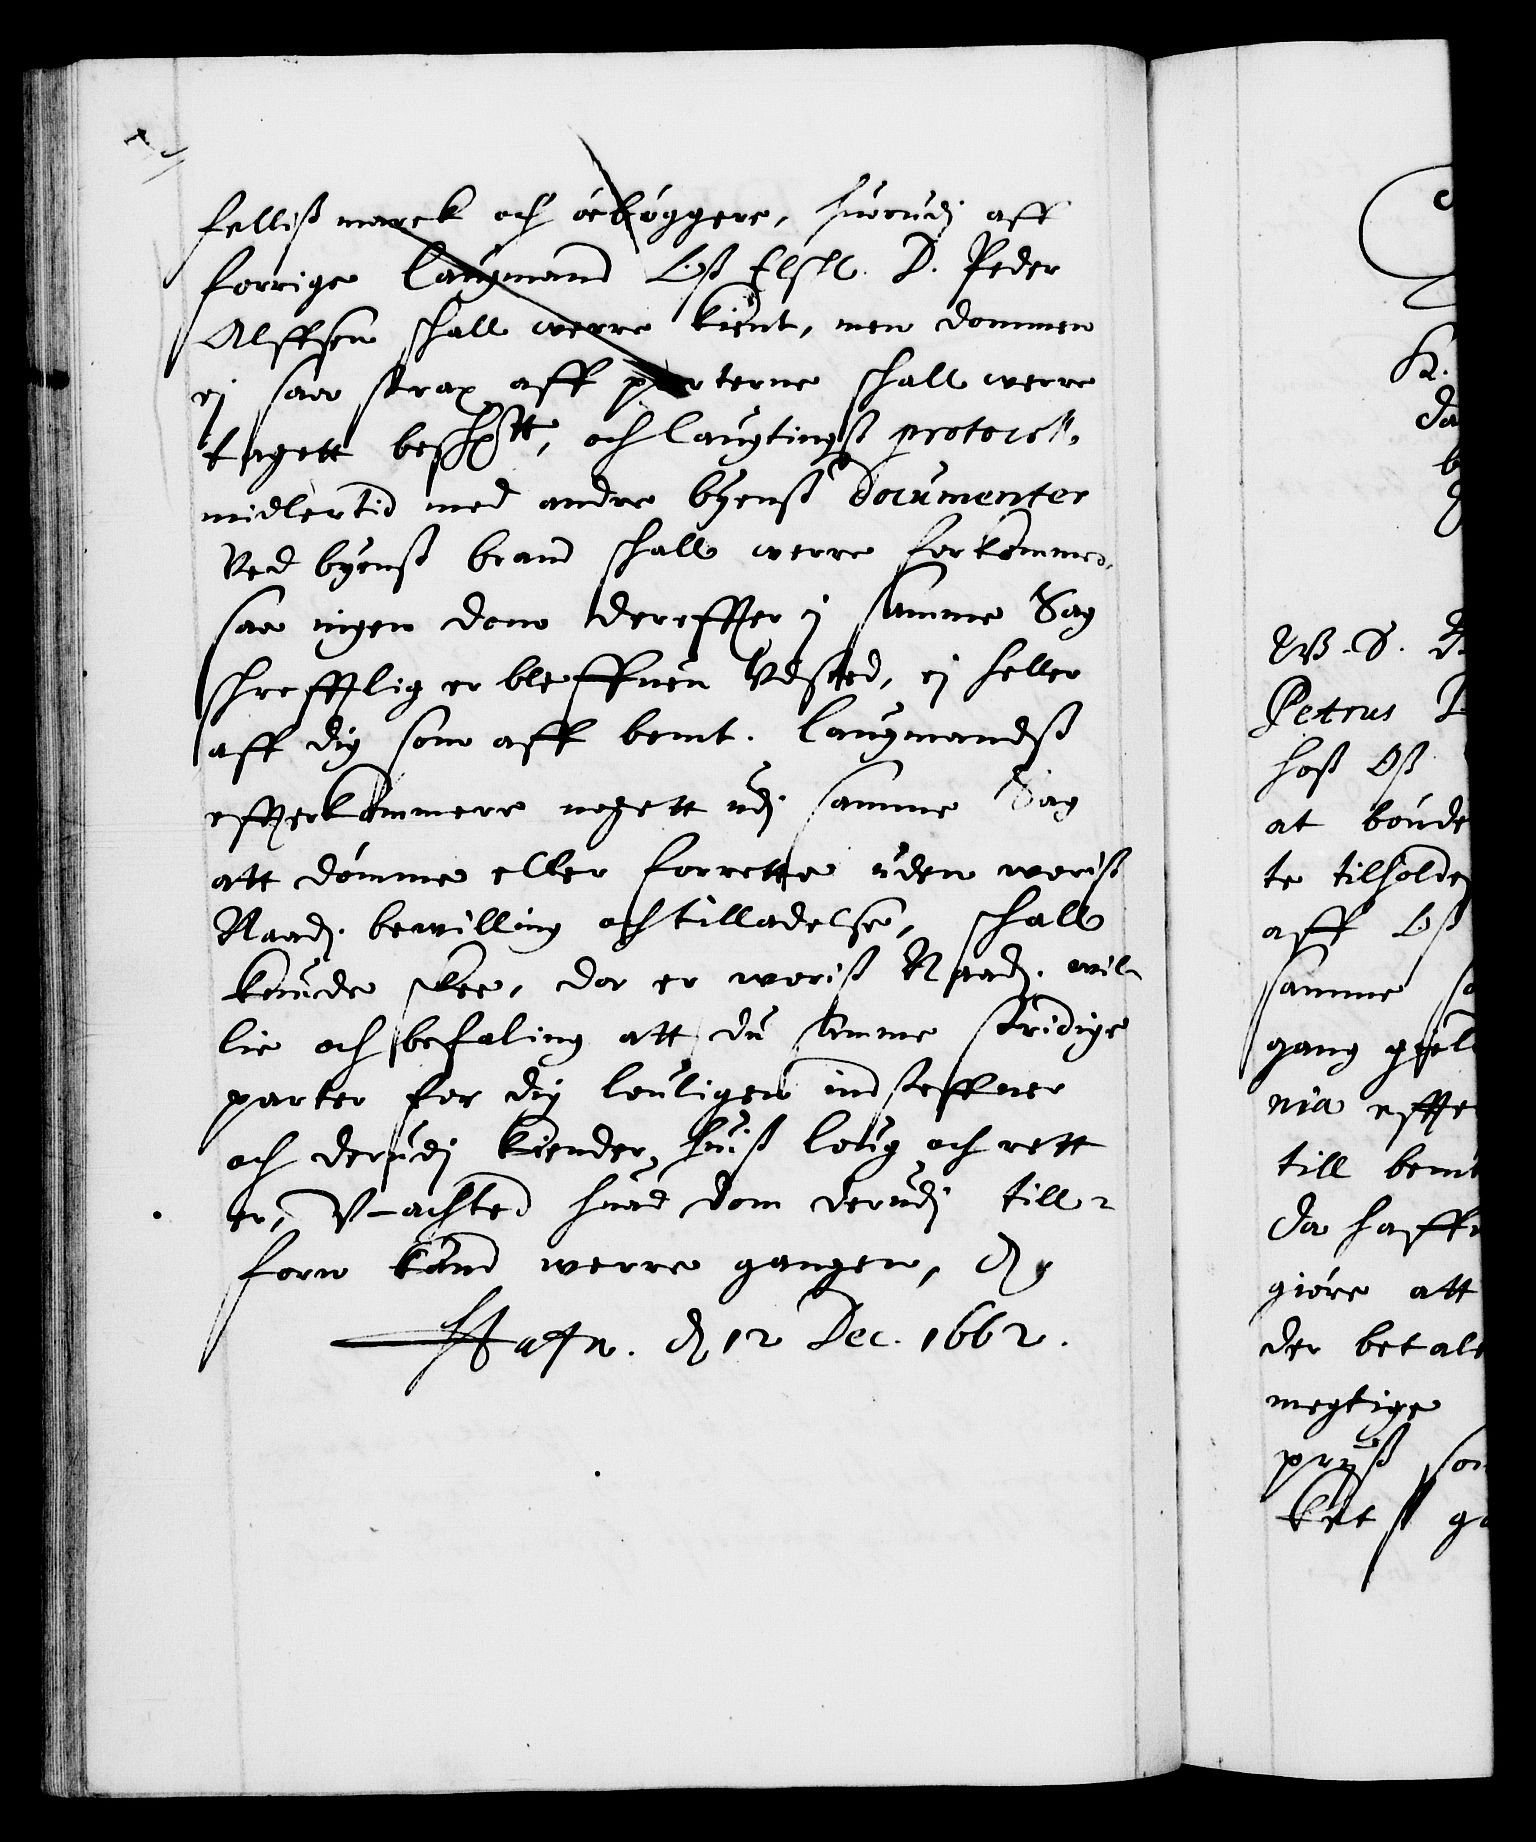 felliß marck och øebøggere, huorudj aff
forrige laugmand Oß Elskl. D. Peder
Alffsøn skall werre kient, men dommen
ej saa strax aff parterne skall were
tagett beskr: och laugtingß protocoll,
midlertid med andre byenß documenter
Ved byenß brand skall werre forkommed,
saa ingen dom dereffter j samme Sag
skrefftlig er bleffuen Udsted, ej heller
aff dig som aff bemt. laugmandß
effterkommere nogett udj samme Sag
att dømme eller forrette uden woriß
Naad: bewilling och tilladelse, skall
kunde skee, da er woriß Naad: wil-
lie och befaling att du samme stridige
parter for dig louligen indsteffner
och derudj kiender, huiß loug och rett
er, V-achted huad dom derudj till-
forn kand werre gangen, D
Hafn. d 12 Dec. 1662.
K.
da
b
Wß. S.
Petrus
hoß Oß
at bønde
te tilholde
aff Oß
samme so
gang giel
nia effte
till bemt
da haff
giøre att
der betale
megtige
prijß som